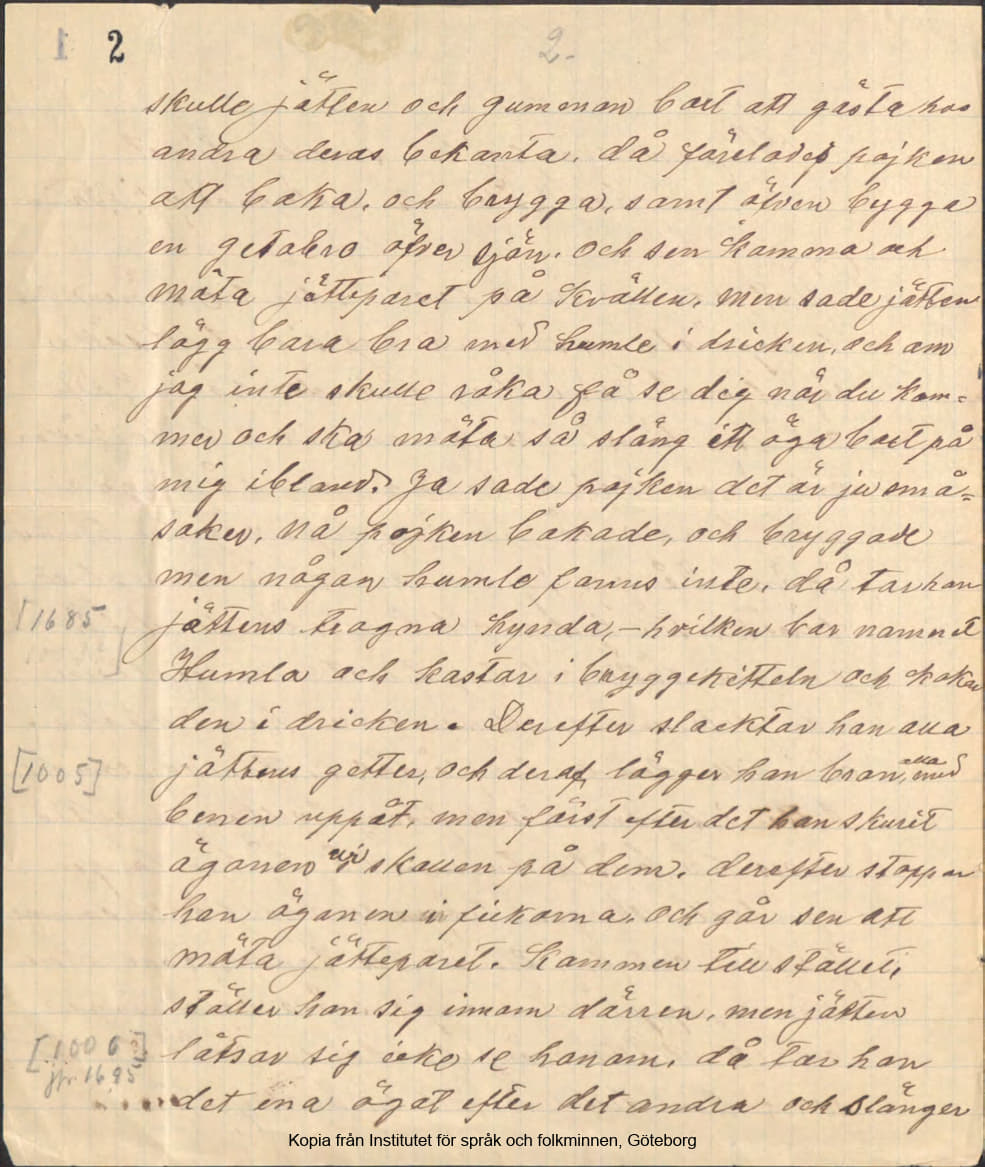 1 2 2.
skulle jätten och gumman bort att gästa hos
andra deras bekanta. då förelades pojken
att baka. och brygga, samt öfven bygga
en getabro öfver sjön. och sen komma och
möta jätteparet på kvällen. men sade jätten
lägg bara bra med humle i dricken, och om
jag inte skulle råka få se dig när du kom=
mer och ska möta så släng ett öga bort på
mig ibland. Ja sade pojken det är ju små=
saker, nå pojken bakade, och bryggade
men någon humle fanns inte. då tar han
[1685
jättens trogna hynda, – hvilken bar namnet
Humla och kastar i bryggekitteln och kokar
den i dricken. Derefter slacktar han alla
[1005]
jättens getter, och deraf lägger han bron, alla med
benen uppåt, men först efter det han skurit
ögonen ur skallen på dem. derefter stoppar
han ögonen i fickorna. och går sen att
möta jätteparet. Kommen till stället,
ställer han sig innom dörren. men jätten
[1006]
jfr 1685
låtsar sig icke se honom. då tar han
det ena ögat efter det andra och slänger
Kopia från Institutet för språk och folkminnen, Göteborg